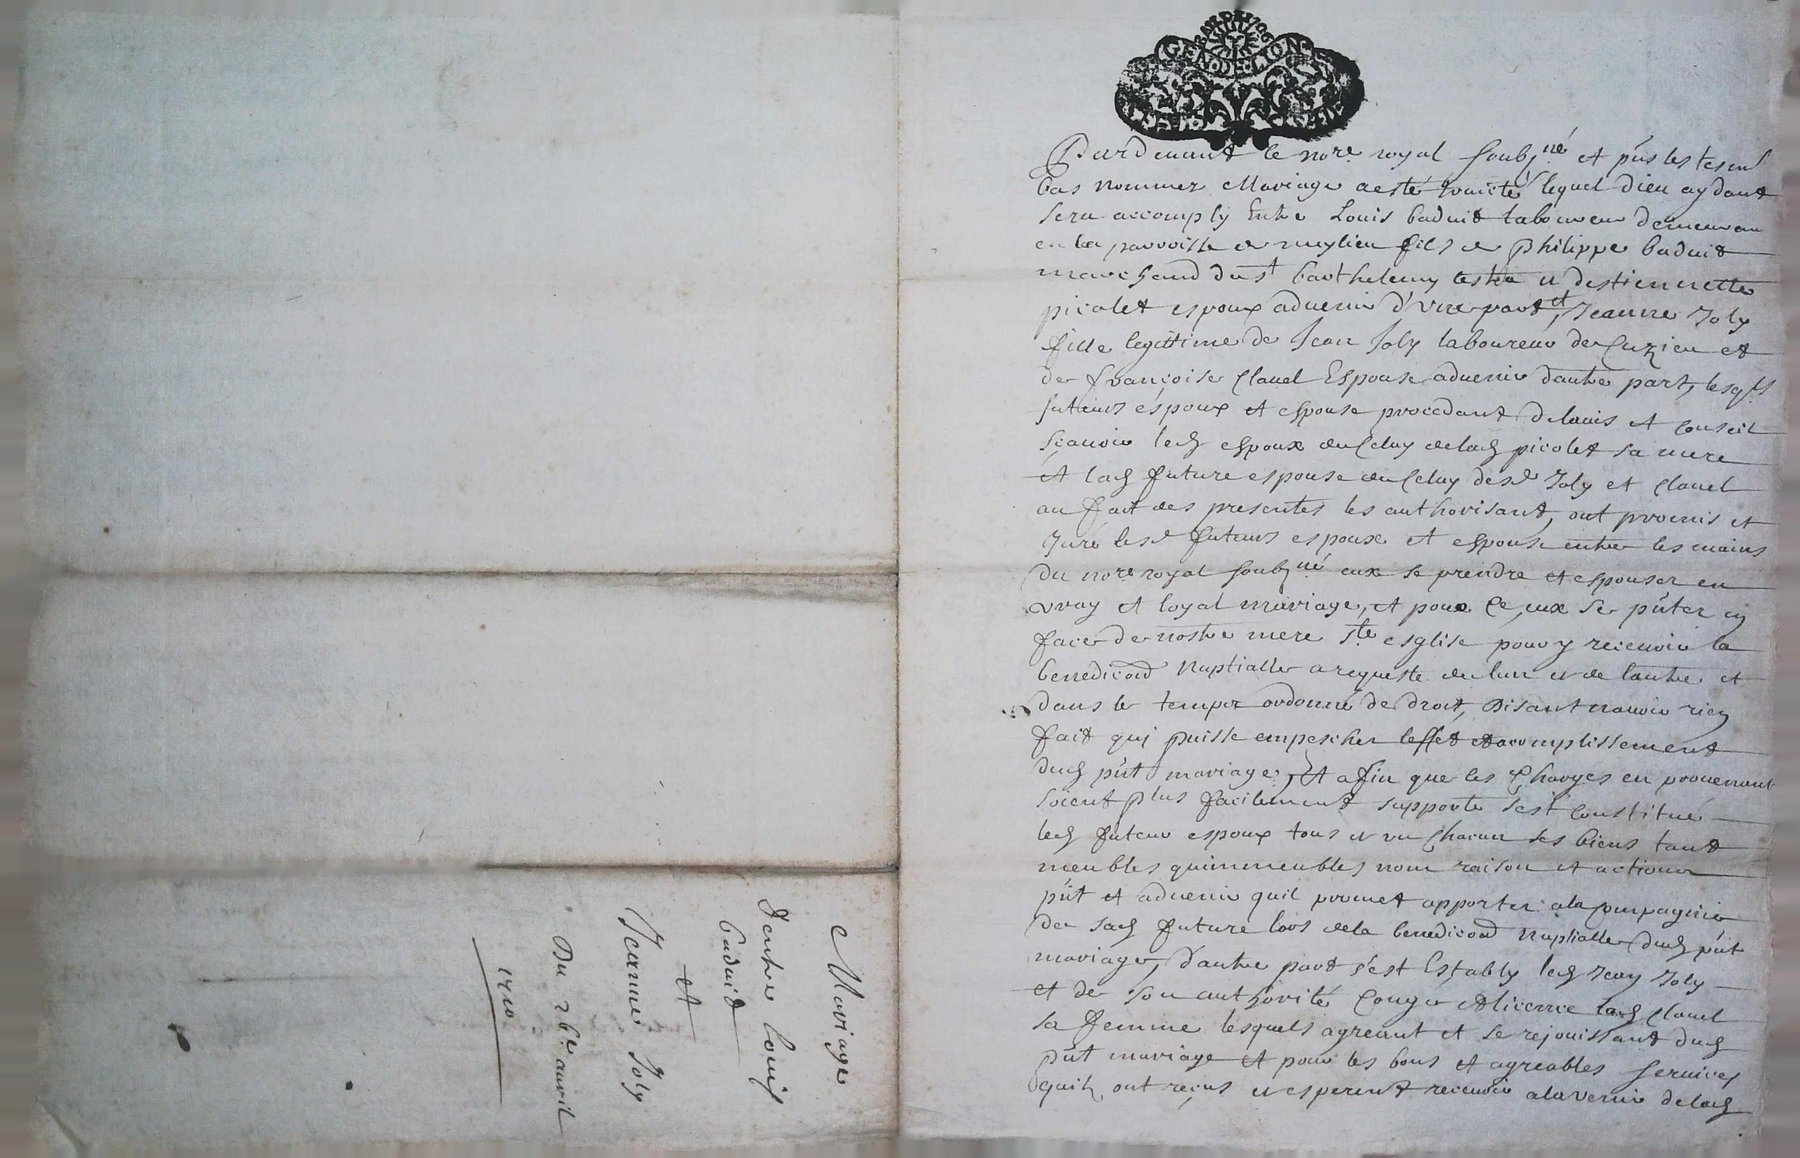 GEN. DE. LION
Pardevant le nore. royal soubzné et pñs les tesms
bas nommez Mariage a esté traicté lequel Dieu aydant
sera accomply Entre Louis baduit laboureur demeurant
en la parroisse de fils de Philippe baduit
marchand du st barthelemy lestra et destiennette
picolet espoux aduenir d'une part, et Jeanne Joly
fille legittime de Jean Joly laboureur de Cuzieu et
de françoise Clauel Espouse aduenir d'autre part, lesqls
futeurs espoux et espouse procedant de lauis et conseil
sçauoir led espoux de Celuy de lad picolet sa mere
et lad future espouse de Celuy desd Joly et Clauel
au fait des presentes les authorisant, ont promis et
Juré lesd futeurs espoux et espouse entre les mains
du nore royal soubzné eux se prendre et espouser en
vray et loyal mariage, et pour Ce eux se pñter en
face de nostre mere ste esglise pour y receuoir la
benedicõn Nuptialle a requeste de lun et de lautre et
dans le temps ordonné de droit, disant nauoir rien
fait qui puisse empescher leffet et acomplissement
dud pñt mariage, Et afin que les Charges en prouenant
soient plus facilement supporté s'est Constitué
led futeur espoux tous et un Chacun ses biens tant
meubles quimmeubles nom raison et actions
pñt et aduenir quil promet apporter a la Compagnie
de sad future lors de la benedicõn Nuptialle dud pñt
mariage, d'autre part s'est Estably led Jean Joly
et de son authorité Congé et licence lad Clauel
sa femme lesquels agreant et se rejouissant dud
pñt mariage et pour les bons et agreables seruices
quils ont reçus et esperent receuoir a lavenir de lad
Mariage
Dentre Louis
baduit
et
Jeanne Joly
Du auril
1710